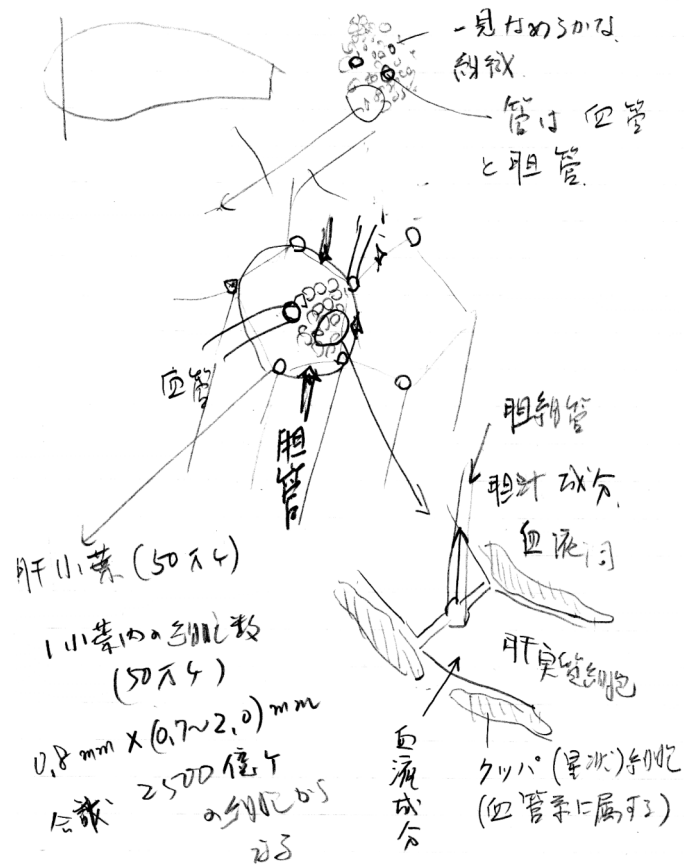 一見なめらかな
組織
管は血管
と胆管
血管
胆管
胆細管
胆汁成分
血液
肝小葉(50万ケ)
1小葉内の細胞数
(50万ケ)
0.8mm×(0.7~2.0)mm
2500億ケ
の細胞から
なる
肝実質細胞
血流成分
クッパ(星状)細胞
(血管系に属する)